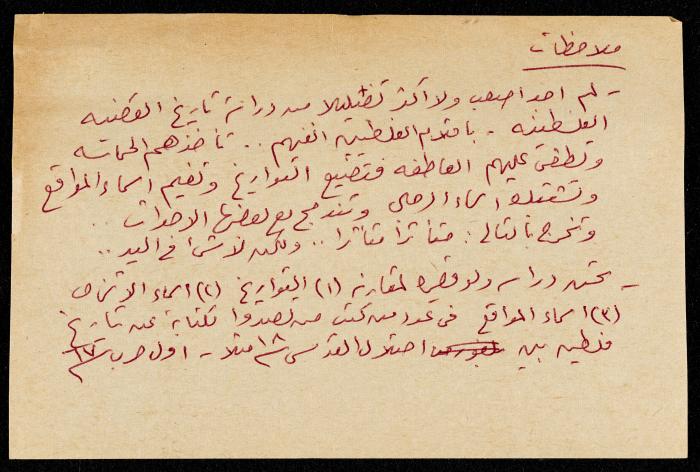 ملاحظات
- لم اجد اصعب ولا اكثر تضليلا من دراسة تاريخ القضيه
الفلسطينيه - باقلام الفلسطينيين انفسهم .. تأخذهم الحماسه
وتطغى عليهم العاطفه فتضيع التواريخ وتغيم اسماء المواقع
وتتشقلب اسماء الرجال وتندمج مع بعضها الاحداث ..
وتخرج بالتالي : متأثراً متأثرا .. ولكن لا شيء في اليد ..
- يحتاج دراسه ولو قصيره لمقارنه (١) التواريخ (٢) اسماء الاشخاص
(٣) اسماء المواقع في عدد من كتب من تصدوا لكتابة عن تاريخ
فلسطين بين احتلال القدس ١٨ مثلا - اول حرب ٦٧